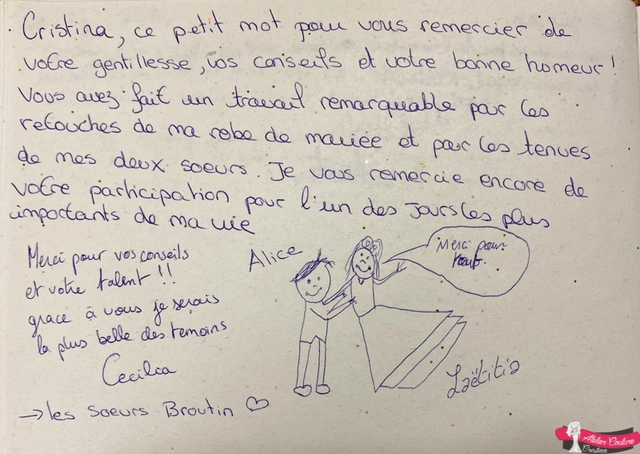 Cristina, ce petit mot pour vous remercier de
votre gentillesse, vos conseils et votre bonne homeur!
Vous avez fait un travail remarquable par les
retouches de ma robe de mariée et par les tenues
de mes deux soeurs. Je vous remercie encore de
votre participation pour l'un des jours les plus
importants de ma vie
Merci pour vos conseils
et votre talent !!
grace à vous je serais
la plus belle des temoins
Cecilia
→ les soeurs Broutin ♡
Alice
Merci pour
tout
Laëtitia
Atelier Couture
Cristina